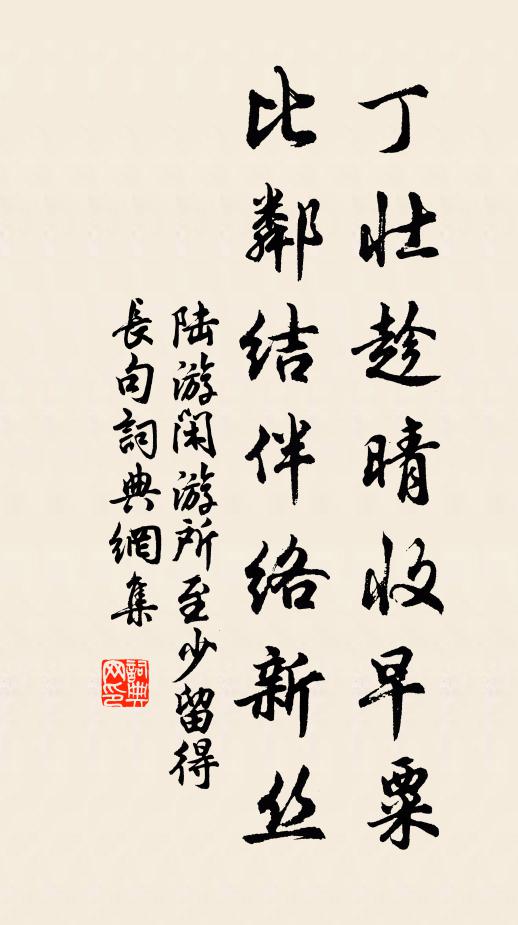 丁壮趁晴收早粟
比鄰结伴络新丝
陆游闲游所至少留得
長句詞典網集
詞典网印